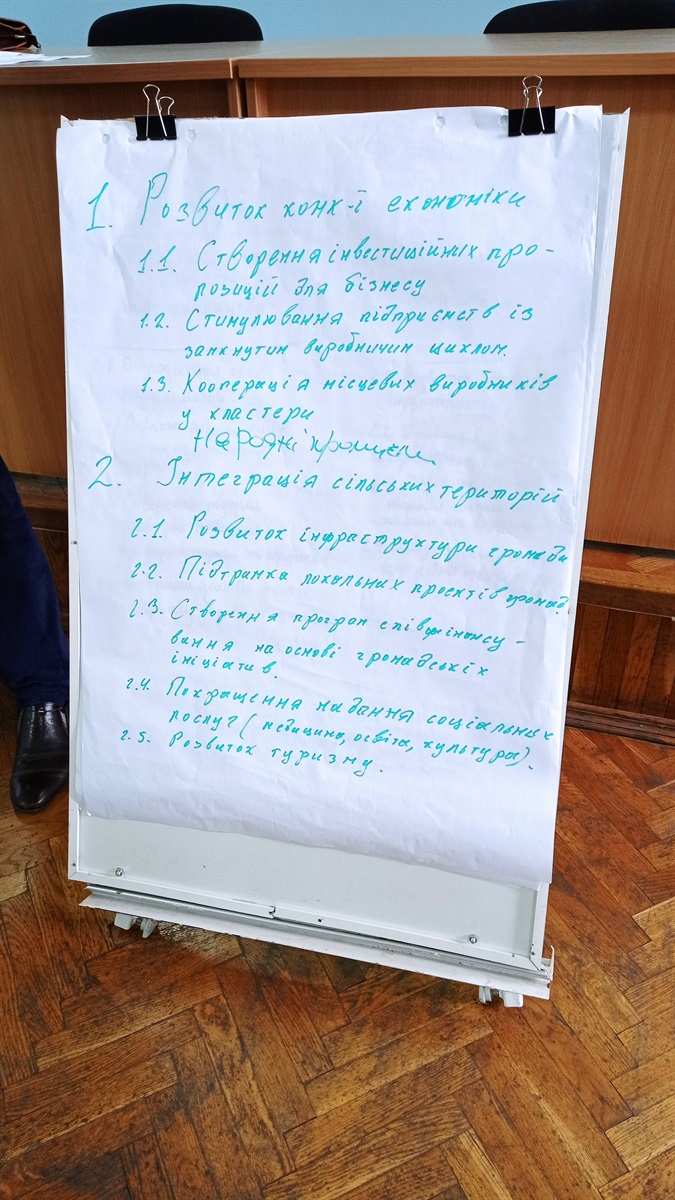 1. Розвиток конк-ї економіки
1.1. Створення інвестиційних про-
позицій для бізнесу
1.2. Стимулювання підприємств із
замкнутим виробничим циклом.
1.3. Кооперація місцевих виробників
у кластери
Народні промисли
2. Інтеграція сільських територій
2.1. Розвиток інфраструктури громади
2.2. Підтримка локальних проєктів громад
2.3. Створення програм співфінансу-
вання на основі громадських
ініціатив.
2.4. Покращення надання соціальних
послуг (медицина, освіта, культура).
2.5. Розвиток туризму.